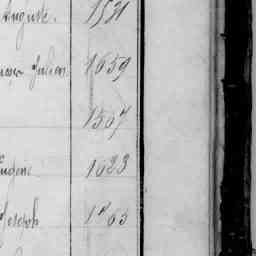 Auguste. 1531
Julien 1659
1567
Eugène 1623
Joseph 1763